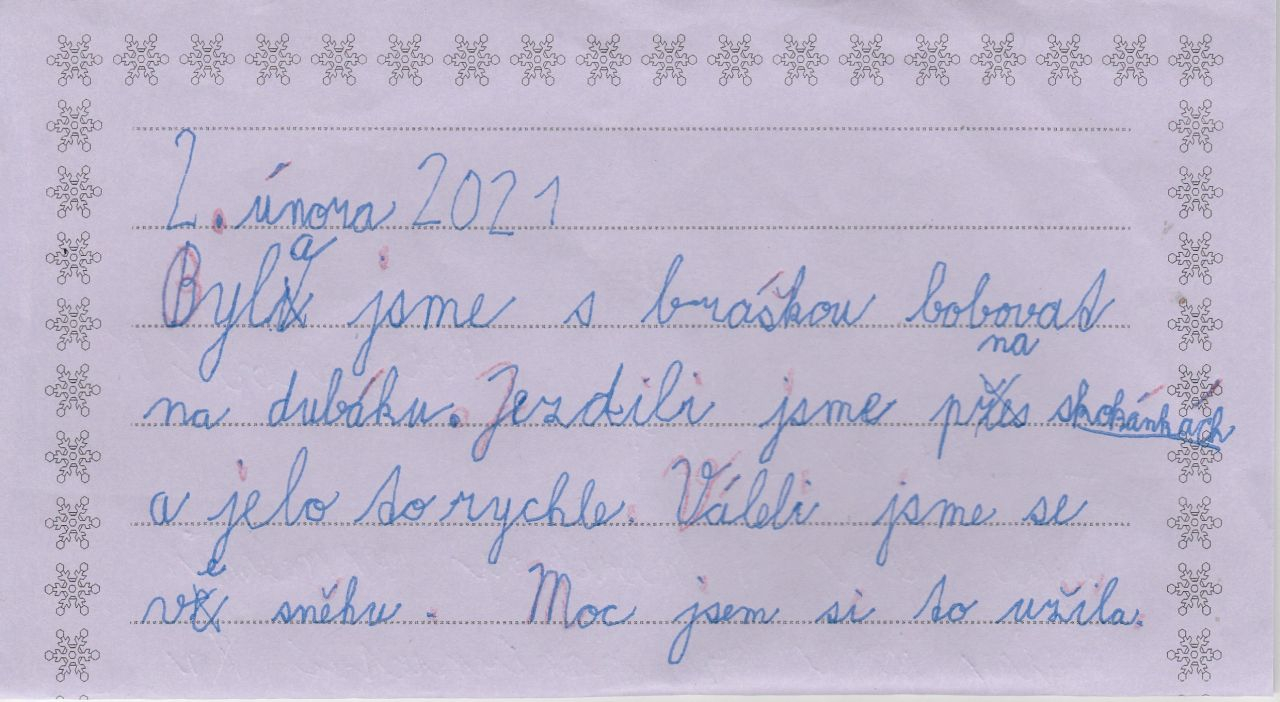 2. února 2021
Byla jsme s bráškou bobovat
na dubáku. Jezdili jsme na skokánkách
a jelo to rychle. Váleli jsme se
ve sněhu. Moc jsem si to užila.